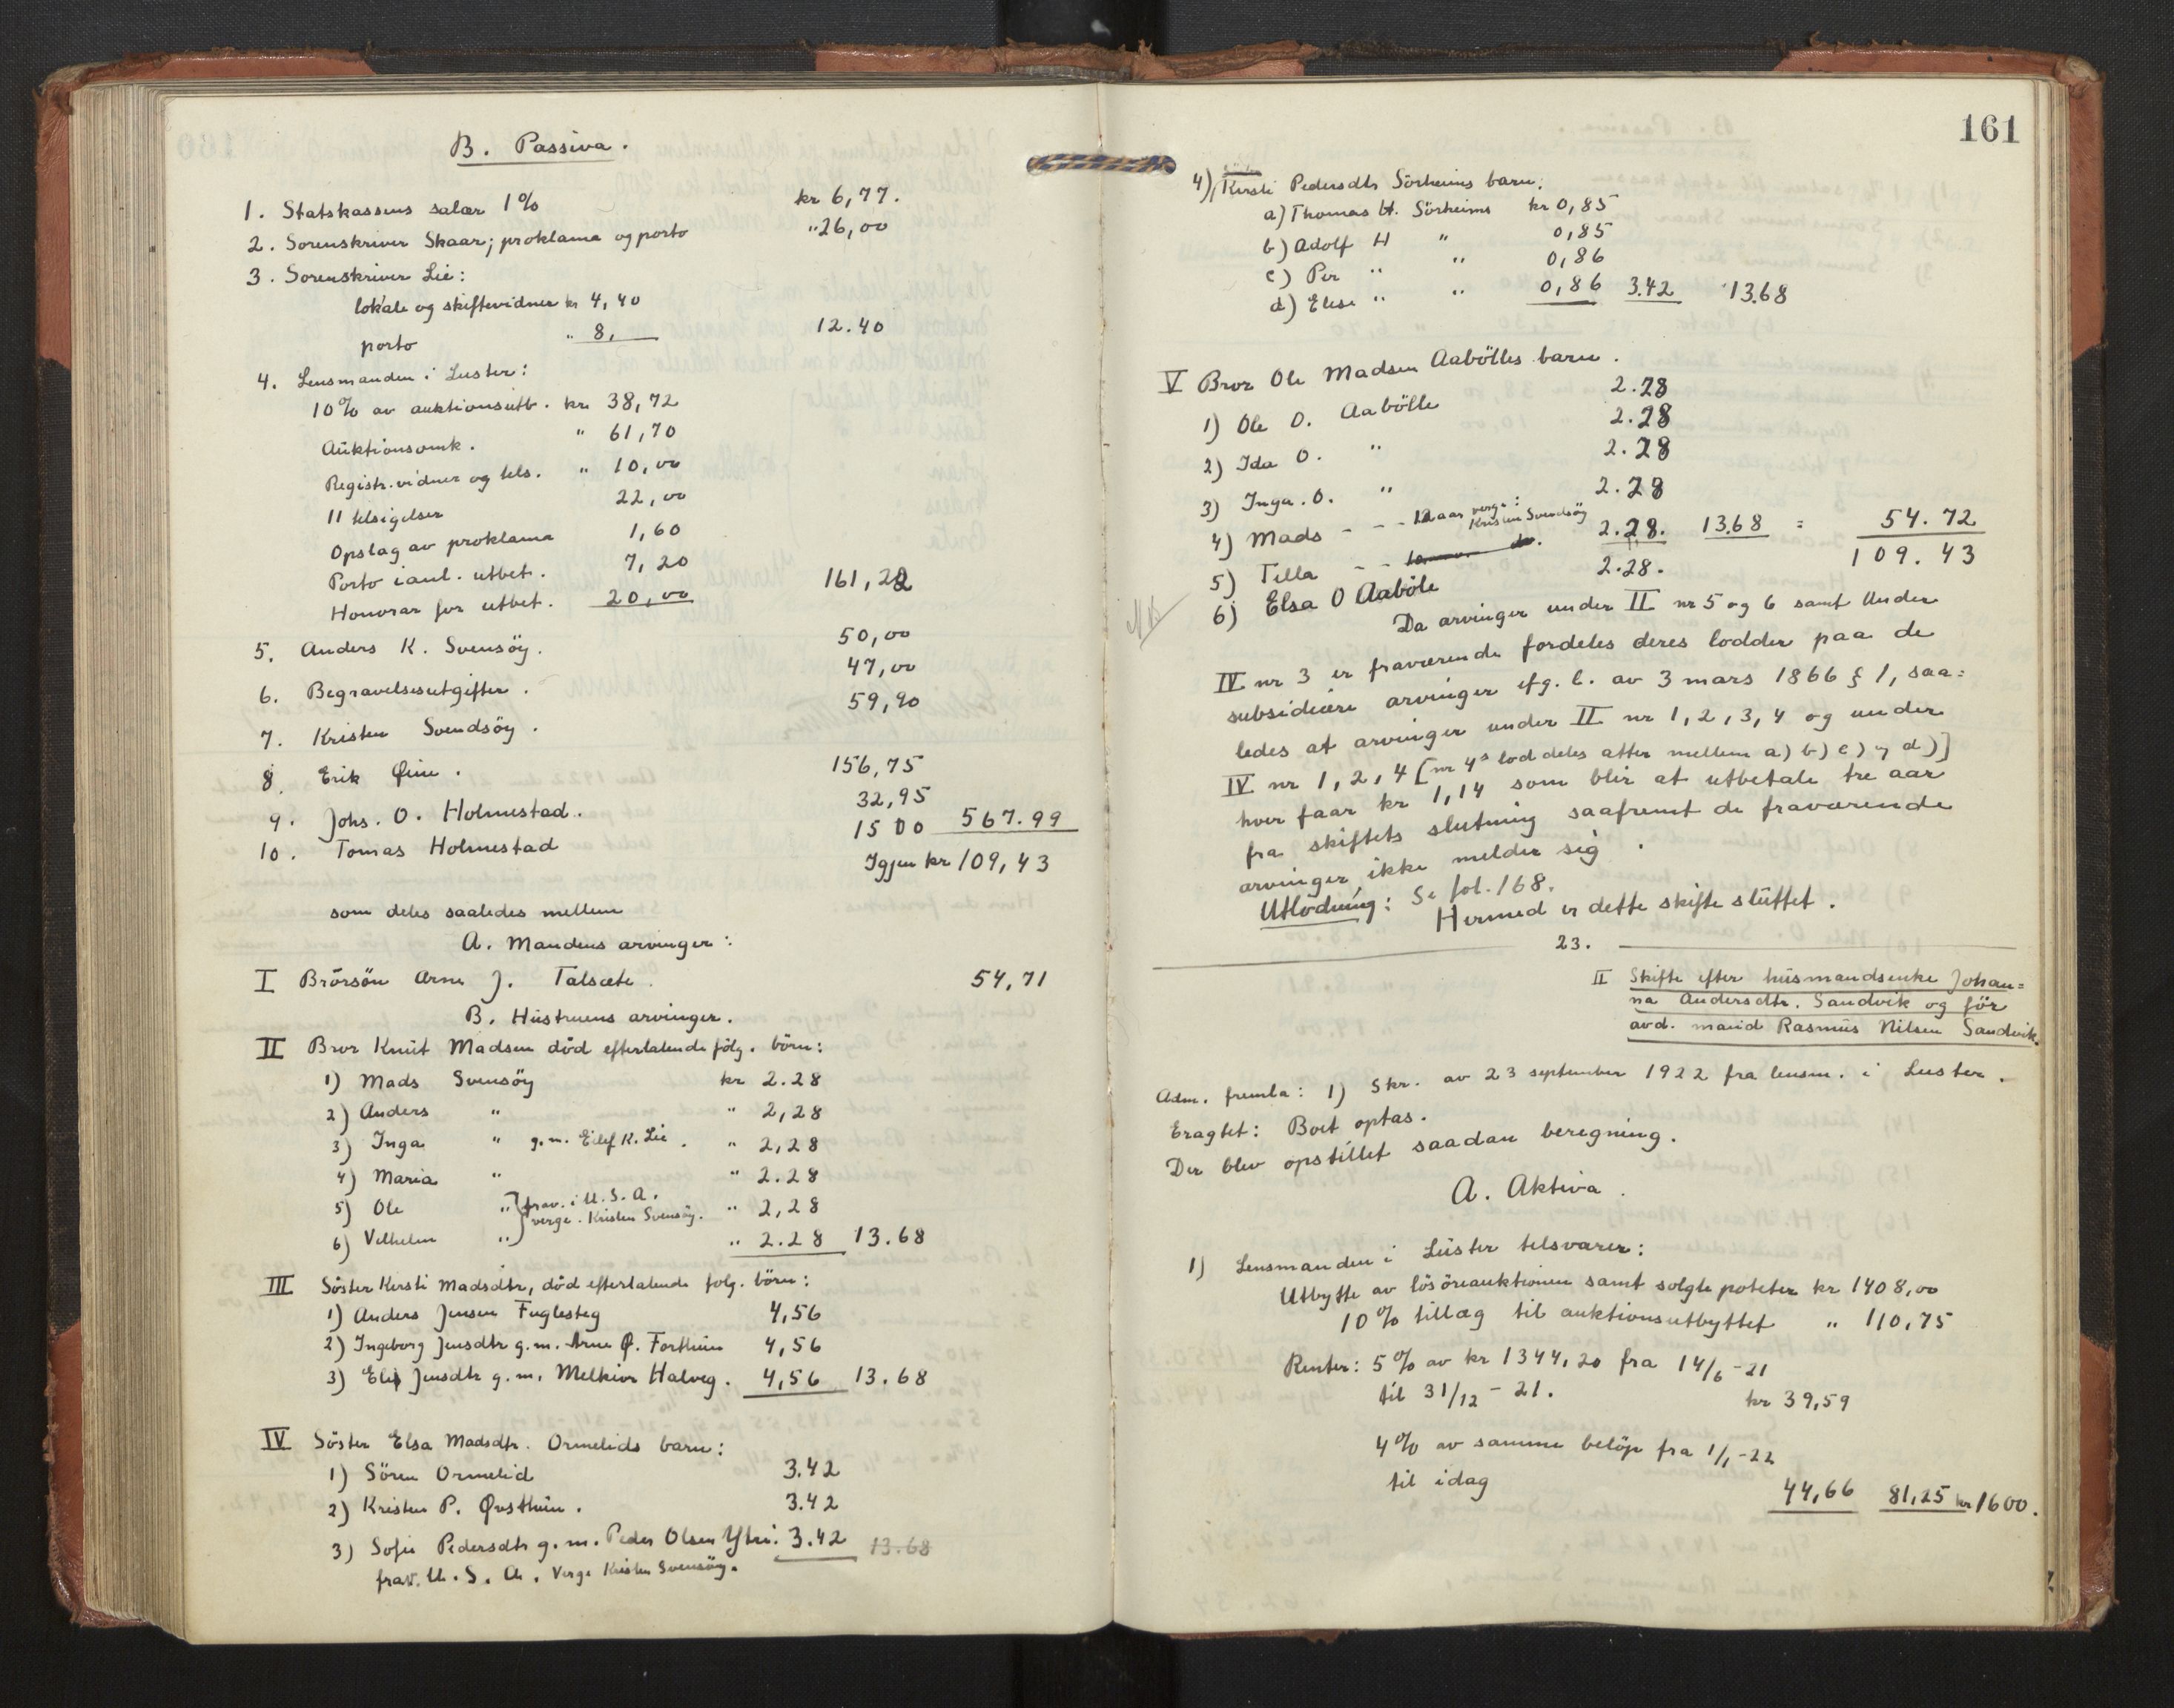 B. Passiva.
1. Statskassens salær 1% kr 6,77.
2. Sorenskriver Skaar; proklama og porto " 26,00
3. Sorenskriver Lie:
lokale og skiftevidner kr 4,40
porto " 8, 12.40
4. Lensmanden i Luster:
10% av auktionsutb. kr 38,72
Auktionsomk. " 61,70
Registr. vidner og tels. " 10,00
11 tilsigelser 22,00
Opslag av proklama 1,60
Porto i anl. utbet. 7,20
Honorar for utbet. 20,00 161,22
5. Anders K. Svensöy. 50,00
6. Begravelsesutgifter. 47,00
7. Kristen Svendsöy. 59,90
8. Erik Øine. 156,75
9. Johs. O. Holmestad. 32,95
10. Tomas Holmestad 15 00 567.99
Igjen kr 109,43
som deles saaledes mellem
A. Mandens arvinger:
I Brorsön Arne J. Talsæte. 54,71
B. Hustruens arvinger.
II Bror Knut Madsen död efterlatende fölg. börn:
1) Mads Svensöy kr 2.28
2) Anders " " 2,28
3) Inga " g.m. Eilef K. Lie. " 2,28
4) Maria " " 2.28
5) Ole " } frav. i U.S.A. " 2,28
6) Vilhelm " } verge. Kristen Svensöy. " 2.28 13.68
III Söster Kersti Madsdtr, död efterlatende folg. börn:
1) Anders Jensen Fuglesteg 4,56
2) Ingeborg Jensdtr g.m. Arne Ø. Forthun 4,56
3) Elis Jensdtr g.m. Melkior Halveg. 4,56 13.68
IV Söster Elsa Madsdtr. Ormelids barn:
1) Sören Ormelid 3.42
2) Kristen P. Øvsthun. 3.42
3) Sofie Pedersdtr g.m. Peder Olsen Ytri. 3.42 13.68
frav. U.S.A. Verge Kristen Svensöy.
161
4) Kersti Pedersdtr Sörheims barn:
a) Thomas H. Sörheims kr 0,85
b) Adolf H " 0,85
c) Per " " 0,86
d) Elise " " 0,86 3.42 13.68
V Bror Ole Madsen Aabölles barn.
1) Ole O. Aabölle 2.28
2) Ida O. " 2.28
3) Inga. O. " 2.28
4) Mads - - - 12 aar verge: Kristen Svendsöy 2.28
5) Tilla - - do. 2.28. 13.68 = 54.72
6) Elsa O Aaböle 2.28. 109.43
NB
Da arvinger under II nr 5 og 6 samt under
IV nr 3 er fraværende fordeles deres lodder paa de
subsidiære arvinger efg. l. av 3 mars 1866 § 1, saa=
ledes at arvinger under II nr 1, 2, 3, 4 og under
IV nr 1, 2, 4 [nr 4s lod deles atter mellem a) b) c) og d)]
hver faar kr 1,14 som blir at utbetale tre aar
fra skiftets slutning saafremt de fraværende
arvinger ikke melder sig.
Utlodning: Se fol. 168.
Hermed er dette skifte sluttet.
23.
II Skifte efter husmandsenke Johan=
na Andersdtr. Sandvik og för
avd. mand Rasmus Nilsen Sandvik.
Adm. fremla: 1) Skr. av 23 september 1922 fra lensm. i Luster.
Eragtet: Boet optas.
Der blev opstillet saadan beregning.
A. Aktiva.
1) Lensmanden i Luster tilsvarer:
Utbytte av lösöreauktionen samt solgte poteter kr 1408,00
10% tillæg til auktionsutbyttet " 110,75
Renter: 5% av kr 1344,20 fra 14/6 - 21
til 31/12 - 21. kr 39,59
4% av samme belöp fra 1/1 - 22
til idag 44,66 81,25 kr 1600.